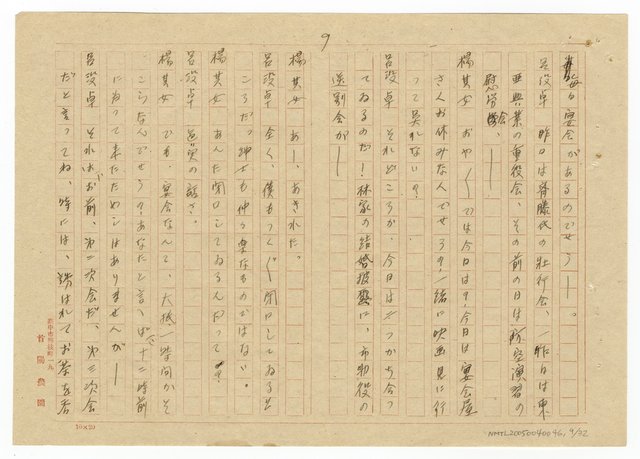 9
毎日宴会があるのでせうー。
呂浚卓　昨日は斉藤氏の壮行会、一昨日は東
亜興業の重役会、その前の日は防空演習の
慰労会、ー
楊其女　おやおやでは今日は？今日は宴会屋
さんお休みなんでせう？一緒に映画見に行
って呉れない？
呂浚卓　それどころか、今日は三つかち合っ
てゐるのだ！林家の結婚披露に、市物役の
送別会がー
楊其女　あー、あきれた。
呂浚卓　全く、僕もつくづく閉口してゐると
ころだ。紳士も仲々楽なものではない。
楊其女　あんた閉口してゐるんだって？
呂浚卓　道の話さ。
楊其女　でも、宴会なんて、大抵一時間かそ
こらなんでせう？あなたと言へば十二時前
に帰って来たためしはありませんがー
呂浚卓　それはお前、第二次会だ、第三次会
だと言ってね、時には、誘はれてお茶を呑
台中市梅枝町一九
首陽農園
10×20
NMTL20050040046, 9/32